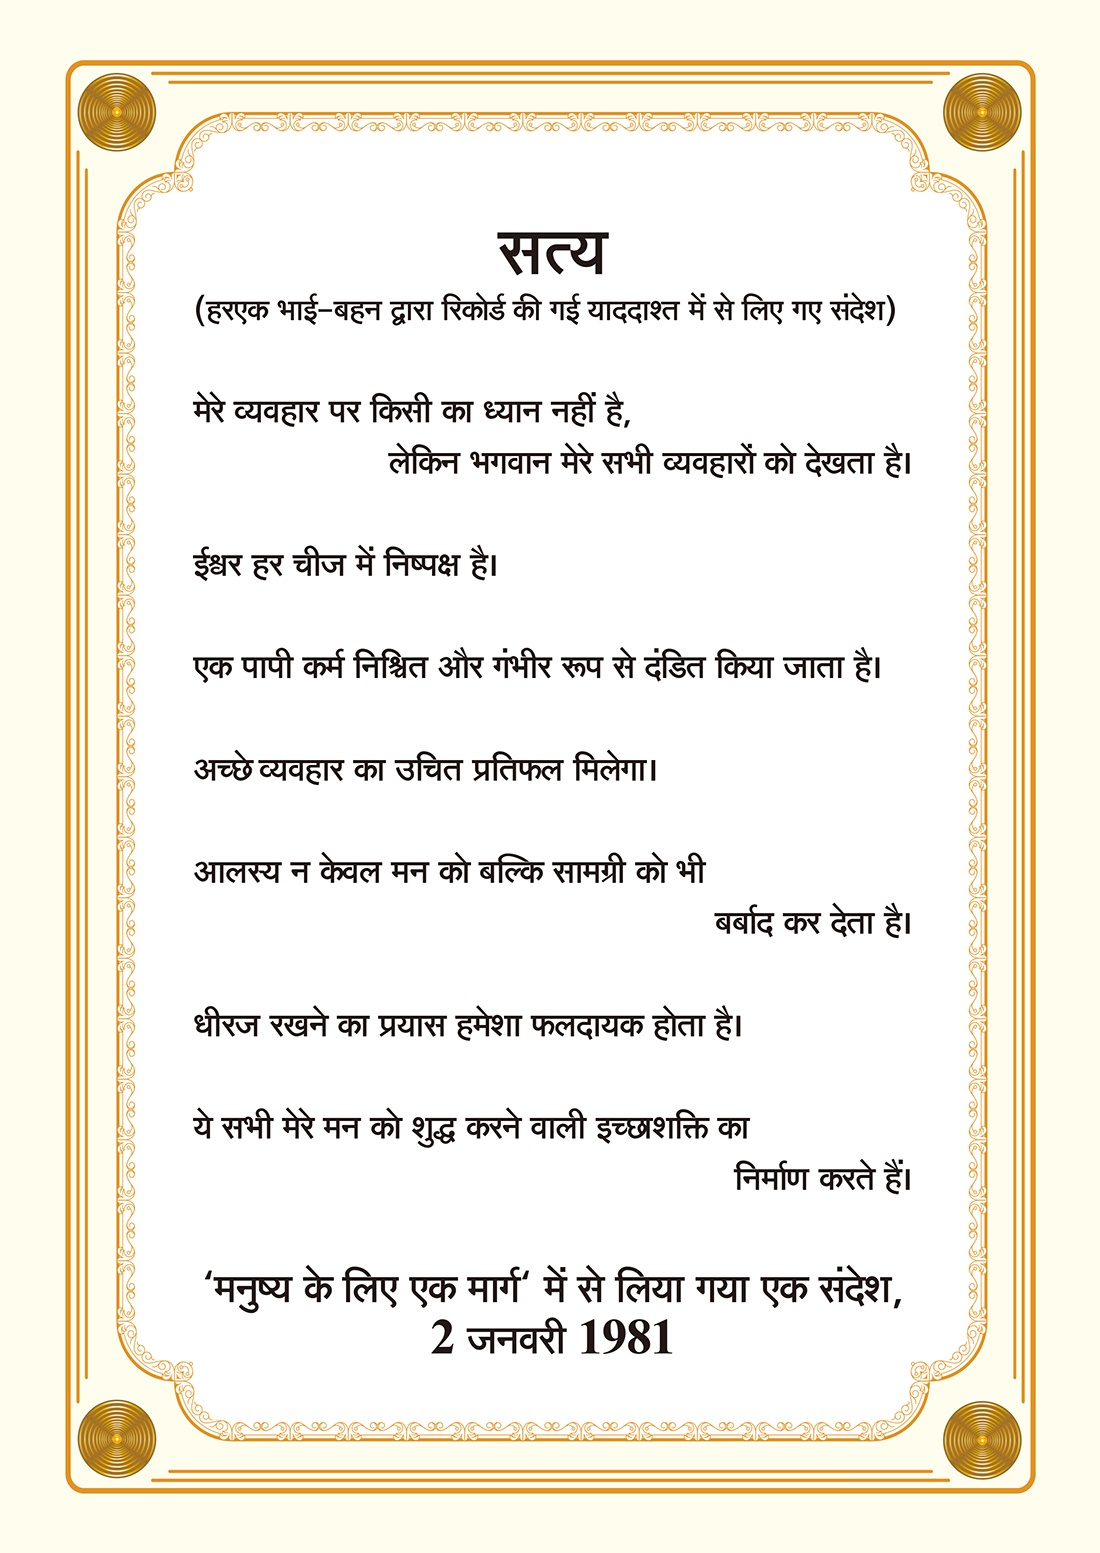 सत्य
(हरएक भाई-बहन द्वारा रिकोर्ड की गई याददाश्त में से लिए गए संदेश)
मेरे व्यवहार पर किसी का ध्यान नहीं है,
लेकिन भगवान मेरे सभी व्यवहारों को देखता है।
ईश्वर हर चीज में निष्पक्ष है।
एक पापी कर्म निश्चित और गंभीर रूप से दंडित किया जाता है।
अच्छे व्यवहार का उचित प्रतिफल मिलेगा।
आलस्य न केवल मन को बल्कि सामग्री को भी
बर्बाद कर देता है।
धीरज रखने का प्रयास हमेशा फलदायक होता है।
ये सभी मेरे मन को शुद्ध करने वाली इच्छाशक्ति का
निर्माण करते हैं।
‘मनुष्य के लिए एक मार्ग‘ में से लिया गया एक संदेश,
2 जनवरी 1981